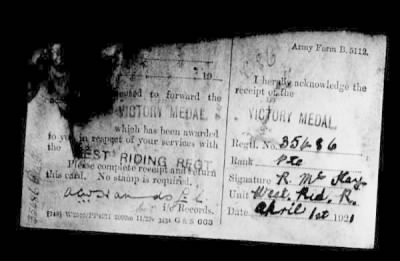 19
Army Form B. 5112.
directed to forward the
VICTORY MEDAL
which has been awarded
to you in respect of your services with
the WEST RIDING REGT.
Please complete receipt and return
this card. No stamp is required.
i/c Records.
G & S 663
I hereby acknowledge the
receipt of the
VICTORY MEDAL.
Regtl. No. 35686
Rank Pte
Signature R. Mc Kay
Unit West. Rid. R.
Date April 1st 1921